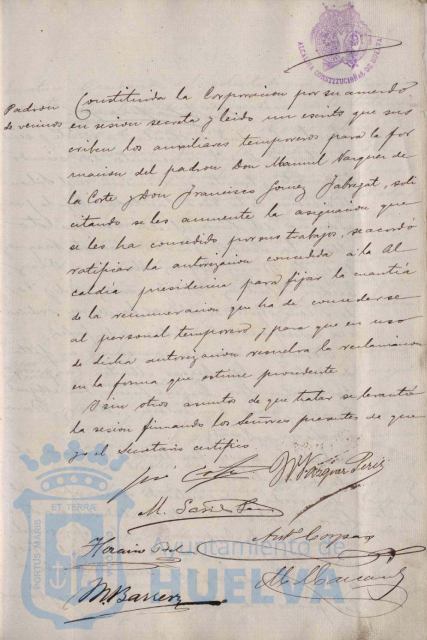 ALCALDIA CONSTITUCIONAL DE HUELVA
Padron
de vecinos
Constituida la Corporacion por su acuerdo
en sesion secreta y leido un escrito que sus
criben los auxiliares temporeros para la for
macion del padron Don Manuel Vazquez de
la Corte y Don Francisco Gomez Jabujat, soli
citando se les aumente la asignacion que
se les ha concedido por sus trabajos, se acordó
ratificar la autorizacion concedida á la Al
caldía presidencia para fijar la cuantía
de la remuneracion que ha de concederse
al personal temporero y para que en uso
de dicha autorizacion resuelva la reclamacion
en la forma que estime procedente
Y sin otros asuntos de que tratar se levantó
la sesion firmando los Señores presentes de que
yo el Secretario certifico
José
M. Vázquez Perez
M. Garcí
Horacio Bel
Antº
M. Barrero
PORTUS MARIS ET TERRAE
Ayuntamiento de
HUELVA